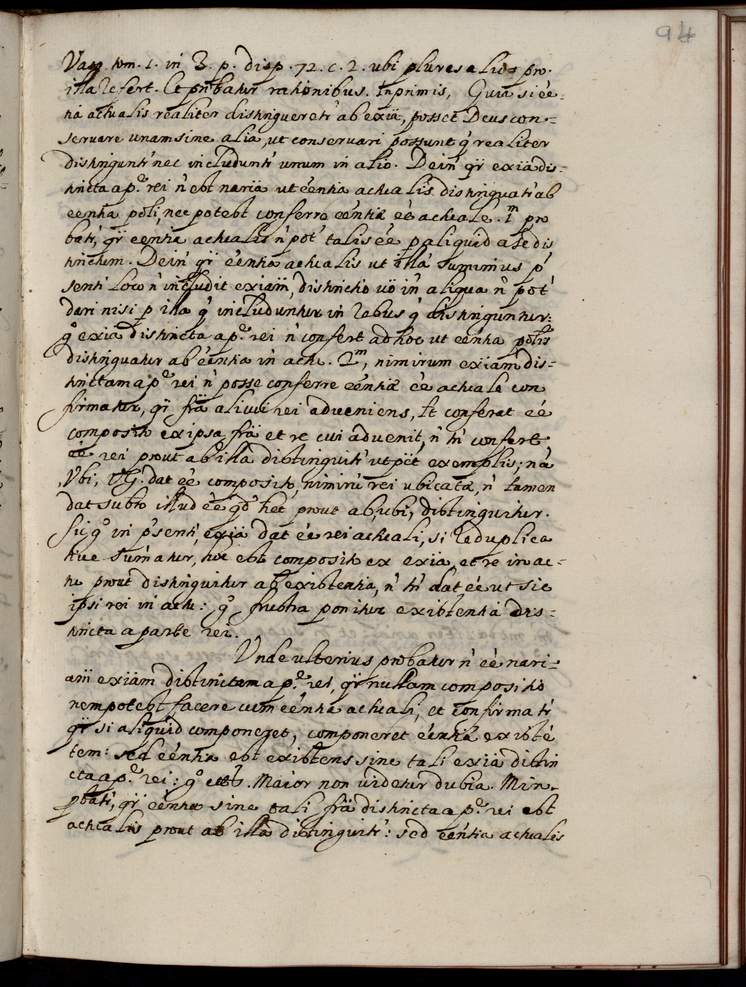 94
Vasq. tom. 1. in 3. p. disp. 72. c. 2. ubi plures alios pro
illa refert. Et probatur rationibus. Inprimis, Quia si eẽ-
tia actualis realiter distingueretr ab exĩa, posset Deus con-
servare unam sine alia, ut conservari possunt q̃ realiter
distinguntr nec includuntr unum in alio. Dein qr̃ exĩa dis-
tincta a p.e rei ñ est nariã ut eẽntia actualis distinguatr ab
eẽntia põli, nec potest conferre eẽntiæ eẽ actuale. 1m pro
batr, qr̃ eẽntia actualis ñ pot talis eẽ p aliquid a se dis
tinctum. Dein qr̃ eẽntia actualis ut illã sumimus p̃
senti loco ñ includit exĩam, distinctio vo in aliqua ñ pot
dari nisi p illa q̃ includuntur in rebus q̃ distinguntur:
go exĩa distincta a p.e rei ñ confert ad hoc ut eẽntia põlis
distinguatur ab eẽntia in actu. 2m, nimirum exĩam dis-
tinctam a p.e rei ñ posse conferre eẽntiæ eẽ actuale con
firmatur, qr̃ frã alicui rei adveniens, lt conferat eẽ
composito ex ipsa frã et re cui advenit, ñ tñ confert
eẽ rei prout ab illa distinguitr ut pet exemplis; nã
Vbi, V.G. dat eẽ composito, nimirũ rei ubicatæ, ñ tamen
dat subto illud eẽ qd het prout ab, ubi, distinguitur.
Sic go in p̃senti, exĩa dat eẽ rei actuali, si reduplica
tive sumatur, hoc est composito ex exĩa, et re in ac-
tu prout distinguitur ab existentia, ñ tñ dat eẽ ut sic
ipsi rei in actu: go frustra ponitur existentia dis-
tincta a parte rei.
Vnde ulterius probatur ñ eẽ nari-
am exĩam distinctam a p.e rei, qr̃ nullam composito
nem potest facere cum eẽntia actuali, et confirmatr
qr̃ si aliquid componeret, componeret eẽntiã existẽ
tem: sed eẽntia est existens sine tali exĩa distin
cta a p.e rei: go etc. Maior non videtur dubia. Min.
pbatr, qr̃ eẽntia sine tali frã distincta a p.e rei est
actualis prout ab illa distinguitr: sed eẽntia actualis